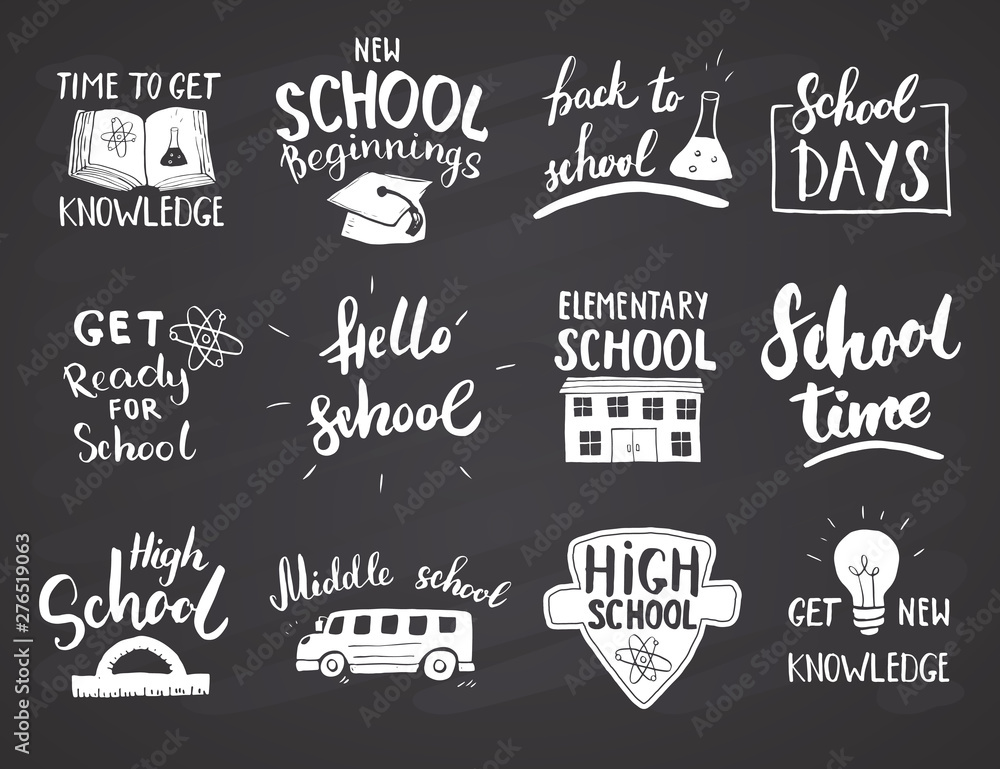 TIME TO GET
KNOWLEDGE
NEW
SCHOOL
Beginnings
back to
school
School
DAYS
GET
Ready
FOR
School
Hello
school
ELEMENTARY
SCHOOL
School
time
High
School
Middle school
HiGH
SCHOOL
GET NEW
KNOWLEDGE
Adobe Stock | #276519063